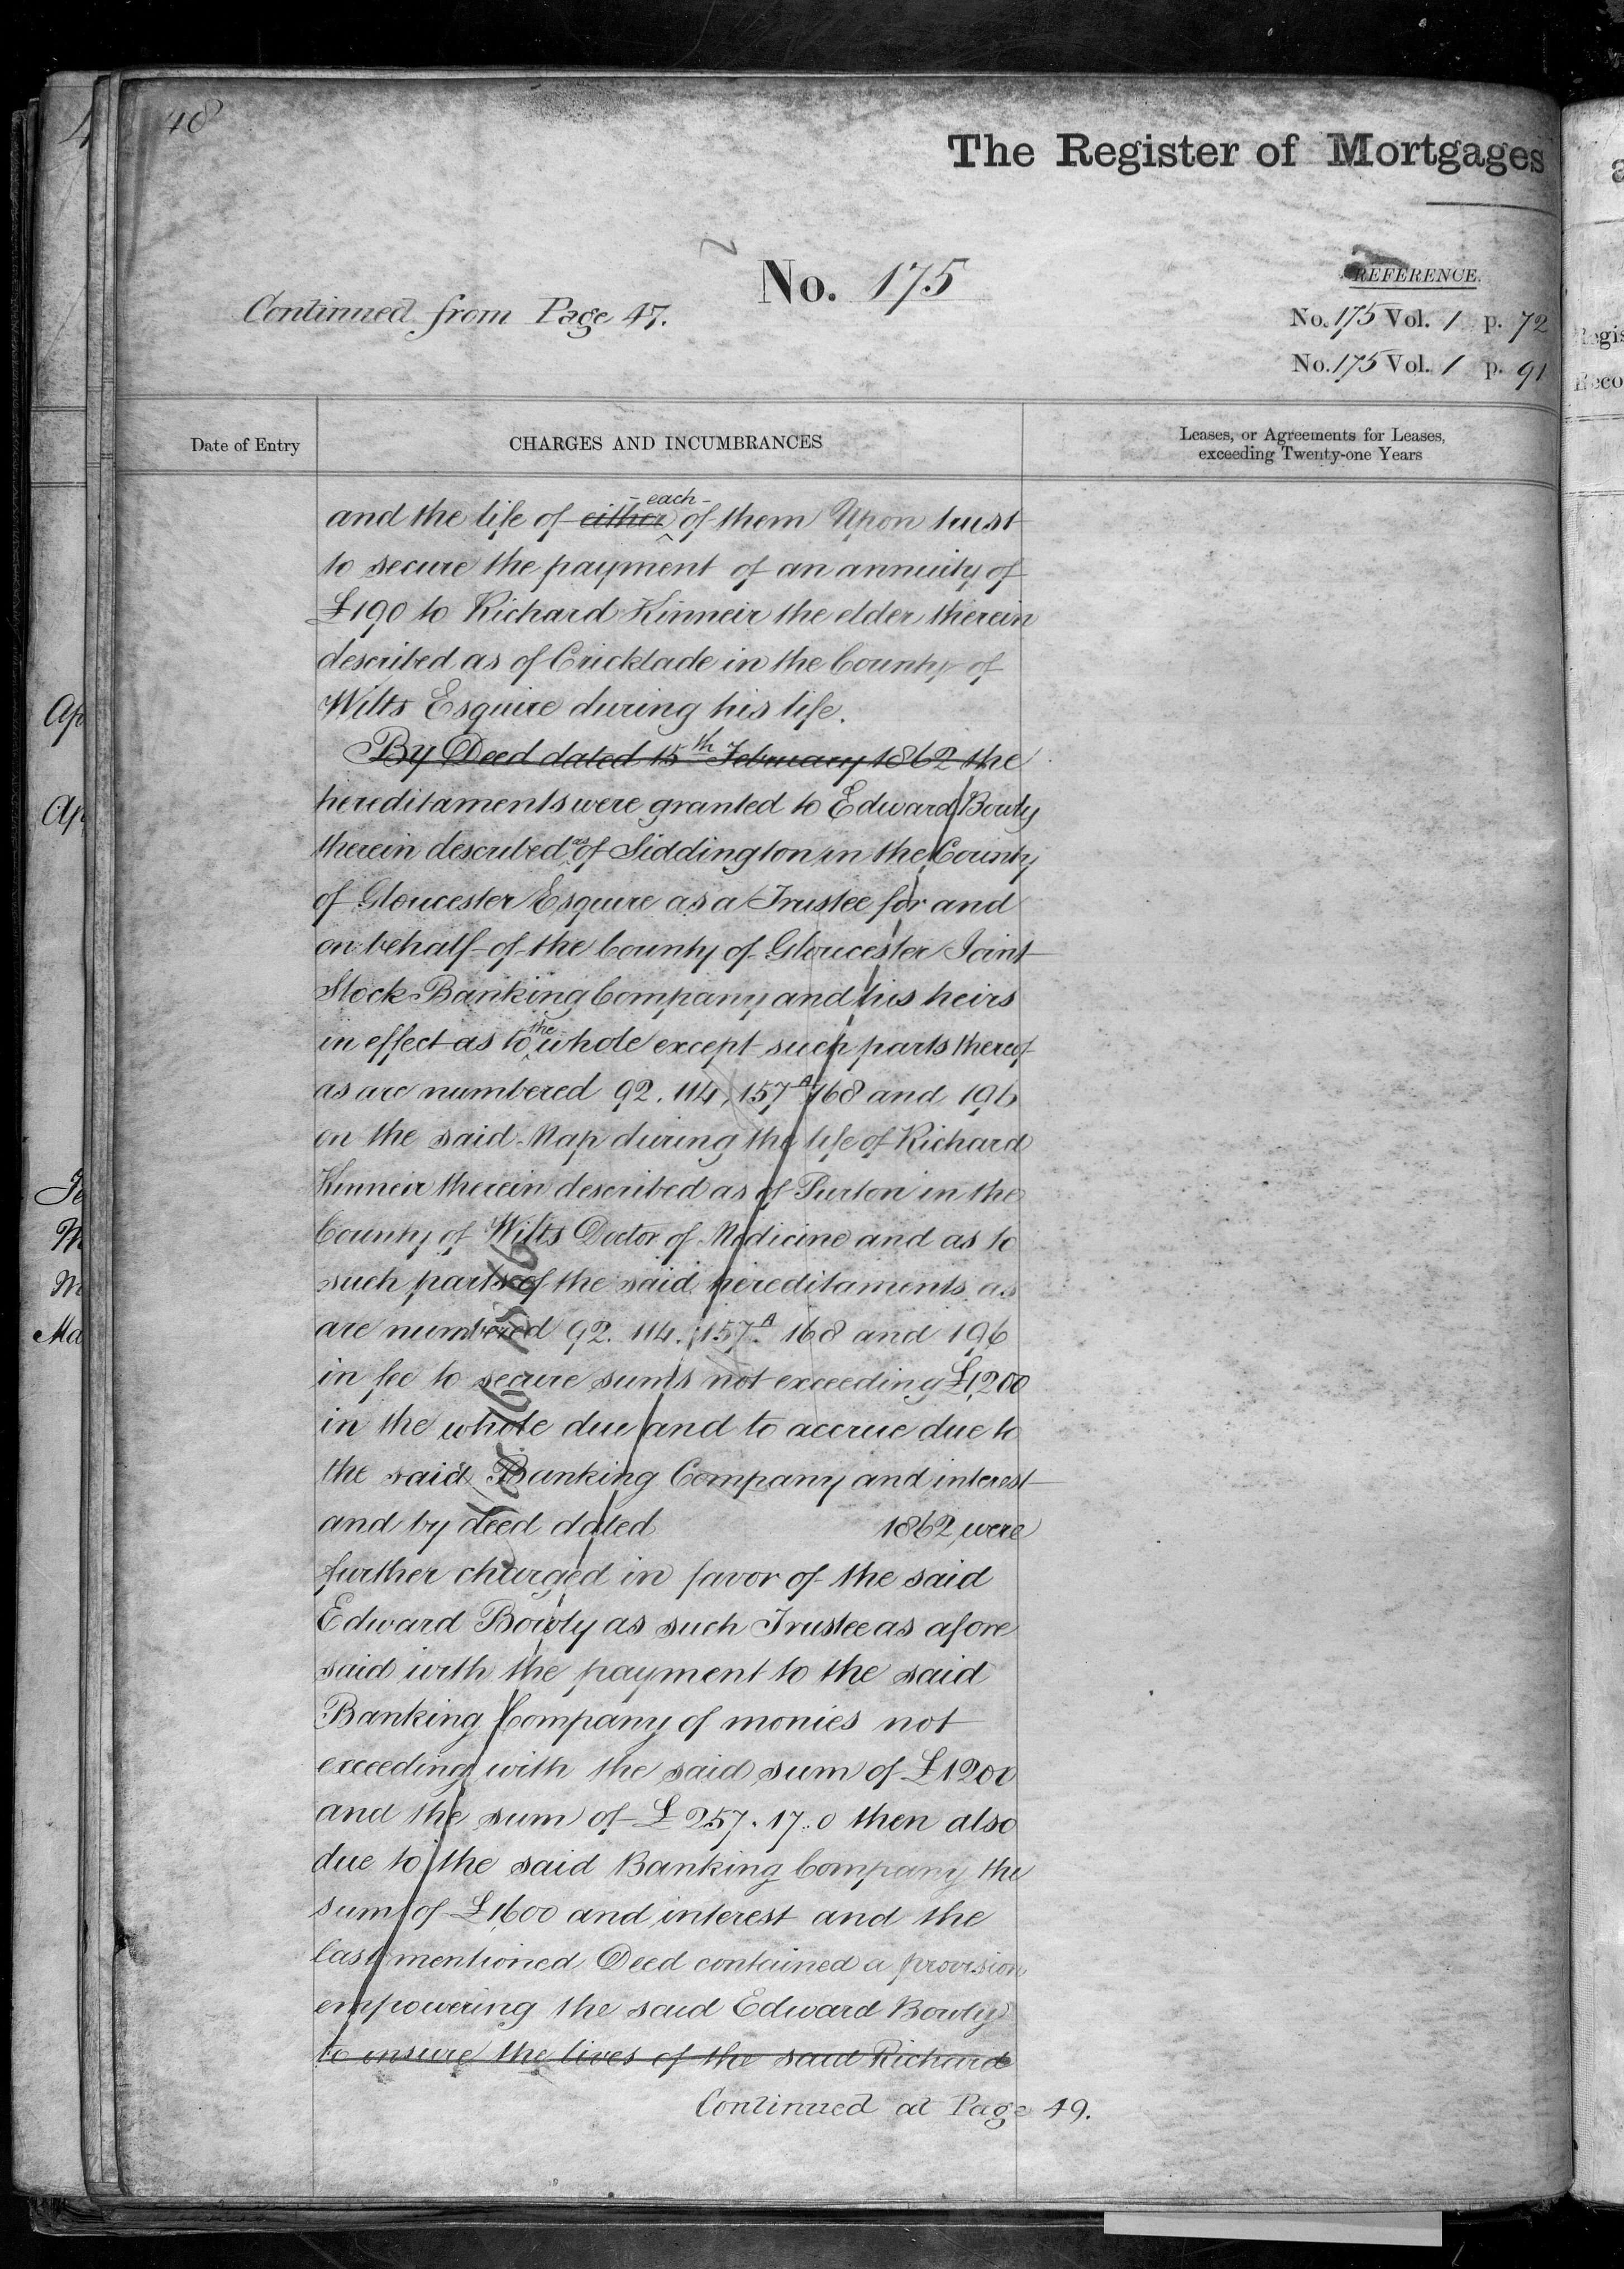 48
The Register of Mortgages
No. 175
REFERENCE.
Continued from Page 47.
No. 175 Vol. 1 p. 72
No. 175 Vol. 1 p. 91
Date of Entry
CHARGES AND INCUMBRANCES
Leases, or Agreements for Leases,
exceeding Twenty-one Years
and the life of either each of them Upon trust
to secure the payment of an annuity of
£190 to Richard Kinneir the elder therein
described as of Cricklade in the County of
Wilts Esquire during his life.
By Deed dated 15th February 1862 the
hereditaments were granted to Edward Bowly
therein described as of Siddington in the County
of Gloucester Esquire as a Trustee for and
on behalf of the County of Gloucester Joint
Stock Banking Company and his heirs
in effect as to the whole except such parts thereof
as are numbered 92. 114, 157A 168 and 196
on the said Map during the life of Richard
Kinneir therein described as of Purton in the
County of Wilts Doctor of Medicine and as to
such parts of the said hereditaments as
are numbered 92. 114. 157A 168 and 196
in fee to secure sums not exceeding £1,200
in the whole due and to accrue due to
the said Banking Company and interest
and by deed dated 1862 were
further charged in favor of the said
Edward Bowly as such Trustee as afore
said with the payment to the said
Banking Company of monies not
exceeding with the said sum of £1200
and the sum of £257. 17. 0 then also
due to the said Banking Company the
sum of £1,600 and interest and the
last mentioned Deed contained a provision
empowering the said Edward Bowly
to insure the lives of the said Richard
Continued at Page 49.